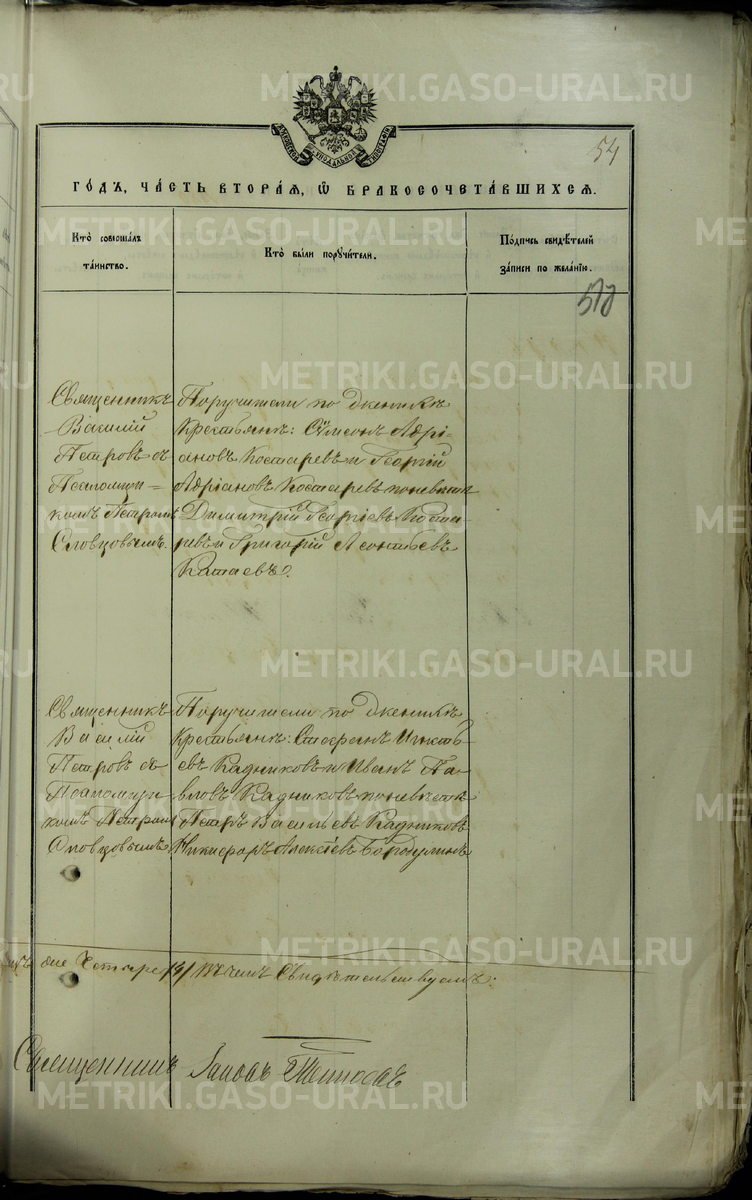 METRIKI.GASO-URAL.RU
54
МОСКОВСКОЙ СѴНОДАЛЬНОЙ ТИПОГРАФІИ
ГО́ДЪ, ЧА́СТЬ ВТОРА́Я, Ѿ БРАКОСОЧЕТА́ВШИХСЯ.
Кто̀ соверша́лъ та́инство.
Кто̀ бы́ли поручи́тели.
По́дпись свидѣ́телей за́писи по жела́нїю.
Священникъ
Василій
Петровъ съ
Псаломщи-
комъ Петромъ
Словцовымъ.
Поручители по женихѣ
Крестьяне: Сѵмеонъ Адрі-
ановъ Костаревъ и Георгій
Адріановъ Костаревъ по невѣстѣ
Димитрій Георгіевъ Коста-
ревъ и Григорій Леонтьевъ
Катаевъ.
Священникъ
Василій
Петровъ съ
Псаломщи-
комъ Петромъ
Словцовымъ
Поручители по женихѣ
Крестьяне: Стефанъ Игнать-
евъ Кадниковъ и Иванъ Па-
вловъ Кадниковъ по невѣстѣ
Петръ Васильевъ Кадниковъ
Никифоръ Алексіевъ Бородулинъ
четыре /4/ въ чемъ Свидѣтельствуемъ:
Священникъ